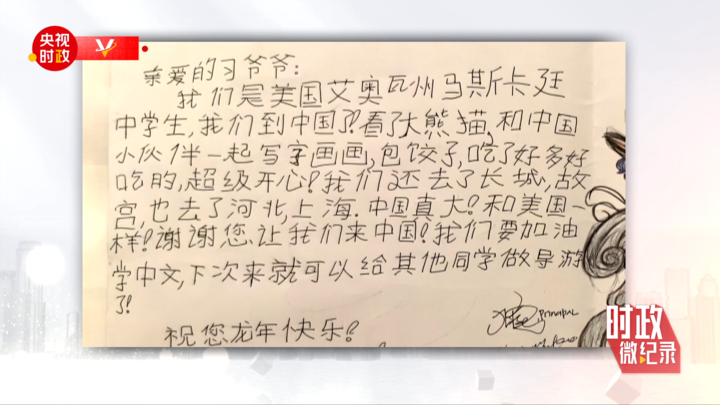 央视
时政
亲爱的习爷爷:
我们是美国艾奥瓦州马斯卡廷
中学生,我们到中国了!看了大熊猫、和中国
小伙伴一起写字画画,包饺子,吃了好多好
吃的,超级开心!我们还去了长城,故
宫,也去了河北,上海.中国真大!和美国一
样!谢谢您让我们来中国!我们要加油
学中文,下次来就可以给其他同学做导游
了!
Principal
祝您龙年快乐!
时政
微纪录